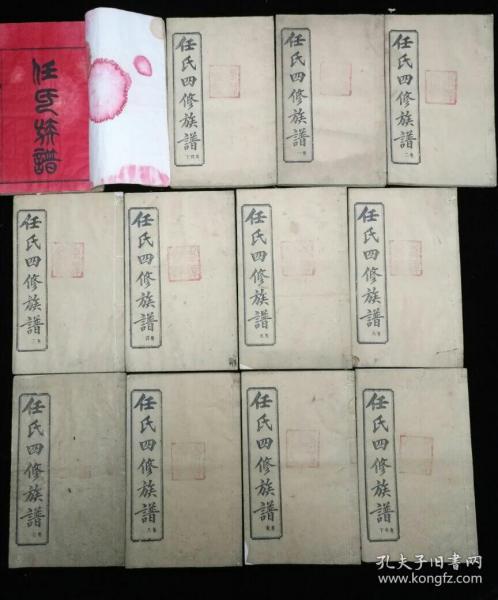 任氏族譜
任氏四修族譜
任氏四修族譜
卷一
任氏四修族譜
卷二
任氏四修族譜
卷三
任氏四修族譜
卷四
任氏四修族譜
卷五
任氏四修族譜
卷六
任氏四修族譜
卷七
任氏四修族譜
卷八
任氏四修族譜
任氏四修族譜
孔夫子旧书网
www.kongfz.com